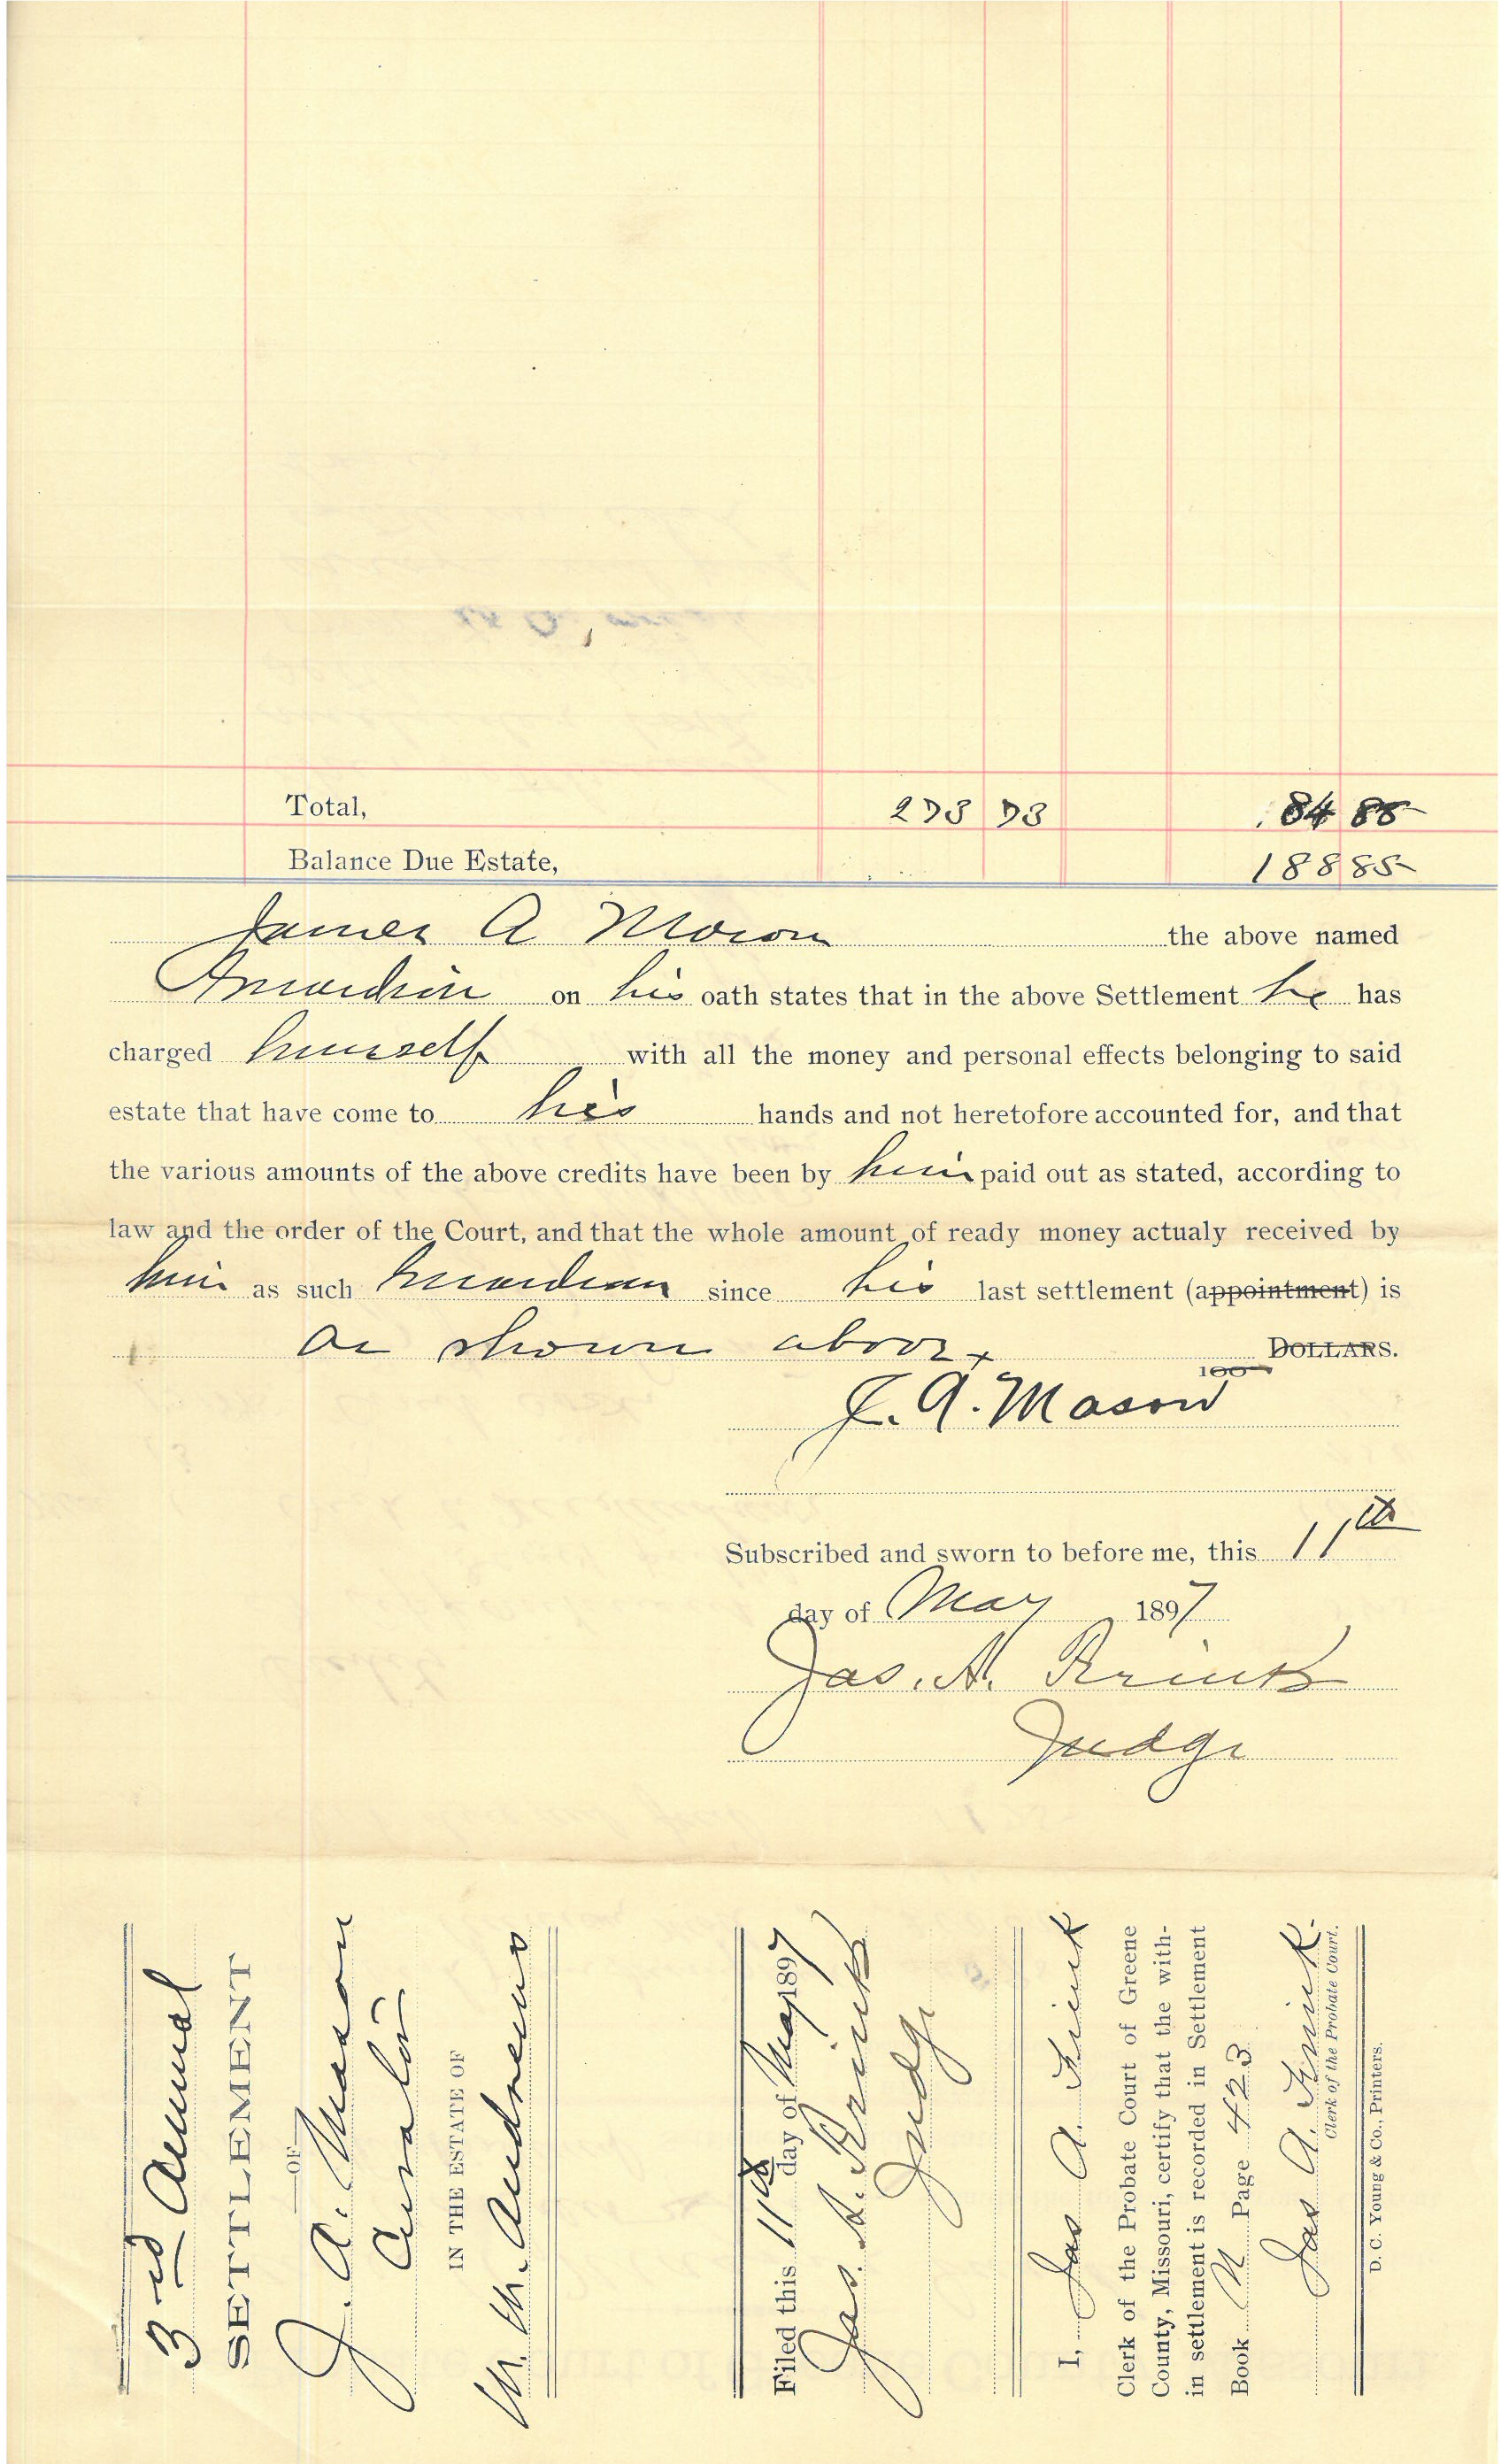 Total, 273 73 84 88
Balance Due Estate, 188 85
James A Mason the above named
Guardian on his oath states that in the above Settlement he has
charged himself with all the money and personal effects belonging to said
estate that have come to his hands and not heretofore accounted for, and that
the various amounts of the above credits have been by him paid out as stated, according to
law and the order of the Court, and that the whole amount of ready money actualy received by
him as such Guardian since his last settlement (appointment) is
as shown above DOLLARS.
100
J. A. Mason
Subscribed and sworn to before me, this 11th
day of May 1897
Jas. A.
Judge
3rd Annual
SETTLEMENT
OF
J. A. Mason
Curator
IN THE ESTATE OF
M. M. Andrews
Filed this 11th day of May 1897
Jas. A.
Judge
I, Jas A
Clerk of the Probate Court of Greene
County, Missouri, certify that the with-
in settlement is recorded in Settlement
Book N Page 423
Jas A.
Clerk of the Probate Court.
D. C. Young & Co., Printers.